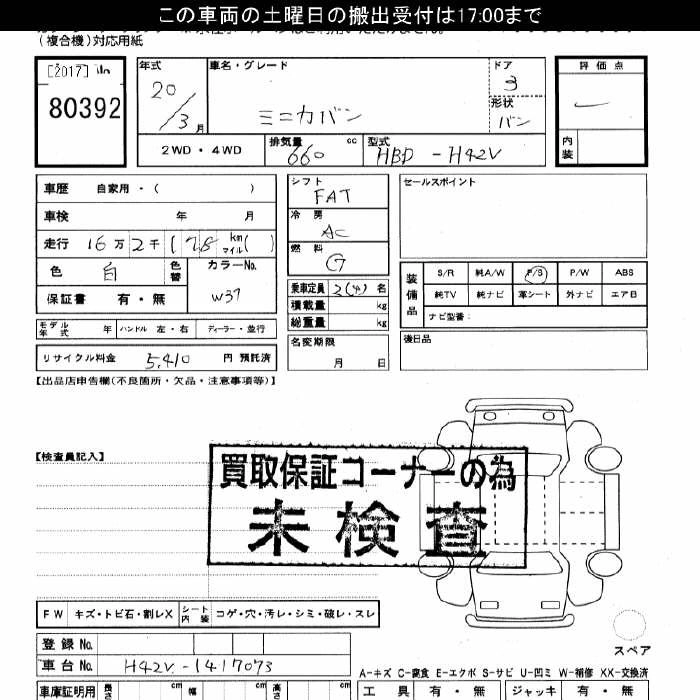 この車両の土曜日の搬出受付は17:00まで
(複合機)対応用紙
[2017]
80392
年式 20/3月
車名・グレード ミニカバン
ドア 3
形状 バン
評価点 ー
内装
2WD・4WD
排気量 660 cc
型式 HBD-H42V
車歴 自家用・( )
車検 年 月
走行 16万2千(178 km マイル( )
色 白 色替
カラーNo. W37
保証書 有・無
モデル年式 年 ハンドル 左・右 ディーラー・並行
リサイクル料金 5,410 円 預託済
シフト FAT
冷房 AC
燃料 G
乗車定員 2(4) 名
積載量 kg
総重量 kg
名変期限 月 日
セールスポイント
装備品
S/R 純A/W P/S P/W ABS
純TV 純ナビ 革シート 外ナビ エアB
ナビ型番:
後日品
【出品店申告欄(不良箇所・欠品・注意事項等)】
【検査員記入】
買取保証コーナーの為
未検査
FW キズ・トビ石・割レX シート内装 コゲ・穴・汚レ・シミ・破レ・スレ
スペア
登録No.
車台No. H42V-1417073
A-キズ C-腐食 E-エクボ S-サビ U-凹ミ W-補修 XX-交換済
車庫証明用 長さ cm 幅 cm 高さ cm
工具 有・無 ジャッキ 有・無